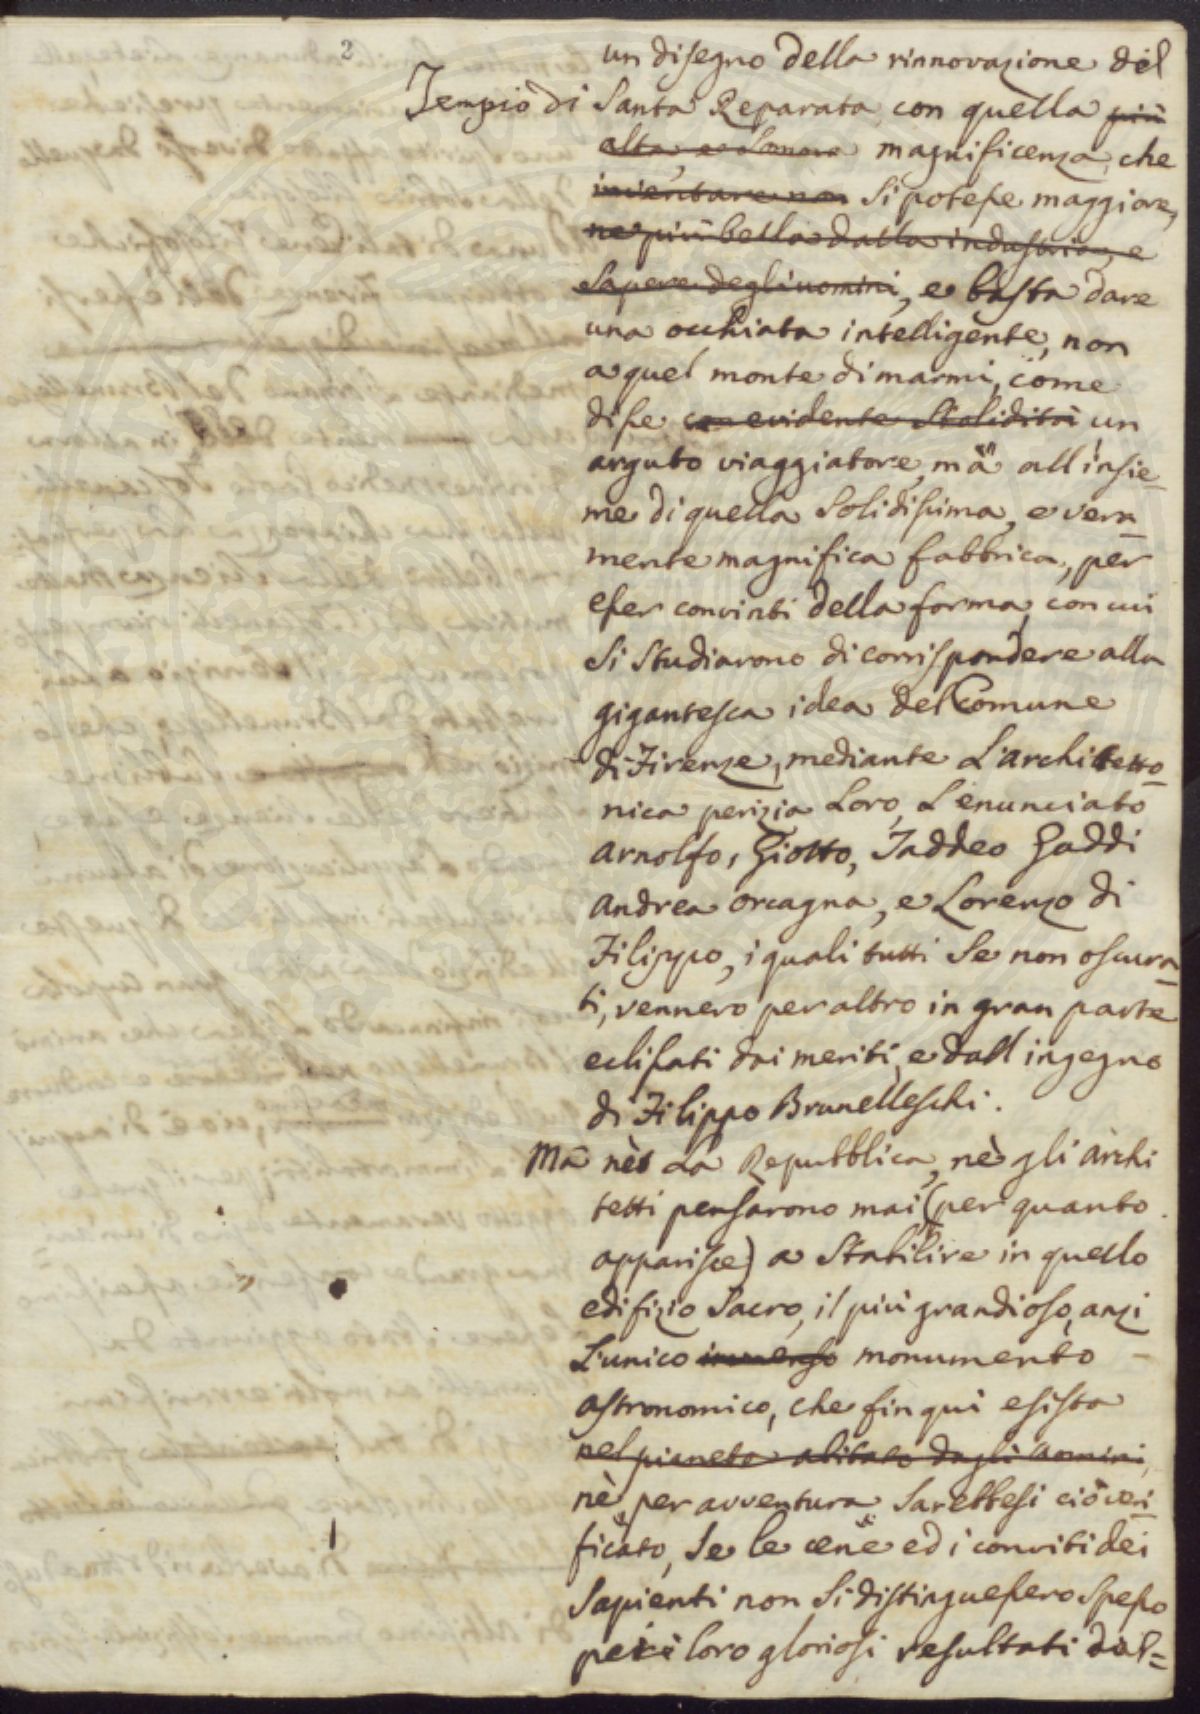 2
un disegno della rinnovazione del
Tempio di Santa Reparata, con quella più
alta, e somma magnificenza, che
inventare non si potesse maggiore,
ne più bella dalla industria, e
sapere degli uomini, e basta dare
una occhiata intelligente, non
a quel monte di marmi, come
disse con evidente stolidità un
arguto viaggiatore, mà all'insie=
me di quella solidissima, e vera
mente magnifica fabbrica, per
esser convinti della forma, con cui
si studiarono di corrispondere alla
gigantesca idea del Comune
di Firenze, mediante L'architetto=
nica perizia Loro, L'enunciato
Arnolfo, Giotto, Taddeo Gaddi
Andrea Orcagna, e Lorenzo di
Filippo, i quali tutti se non oscura=
ti, vennero per altro in gran parte
eclissati dai meriti, e dall'ingegno
di Filippo Brunelleschi.
Mà nè La Repubblica, nè gli Archi
tetti pensarono mai (per quanto
apparisce) a stabilire in quello
edifizio Sacro, il più grandioso, anzi
L'unico immenso monumento
astronomico, che fin qui esista
nel pianeta abitato dagli uomini,
nè per avventura sarebbesi ciò veri
ficato, se le cene ed i conviti dei
sapienti non si distinguessero spesso
per i loro gloriosi resultati dal=